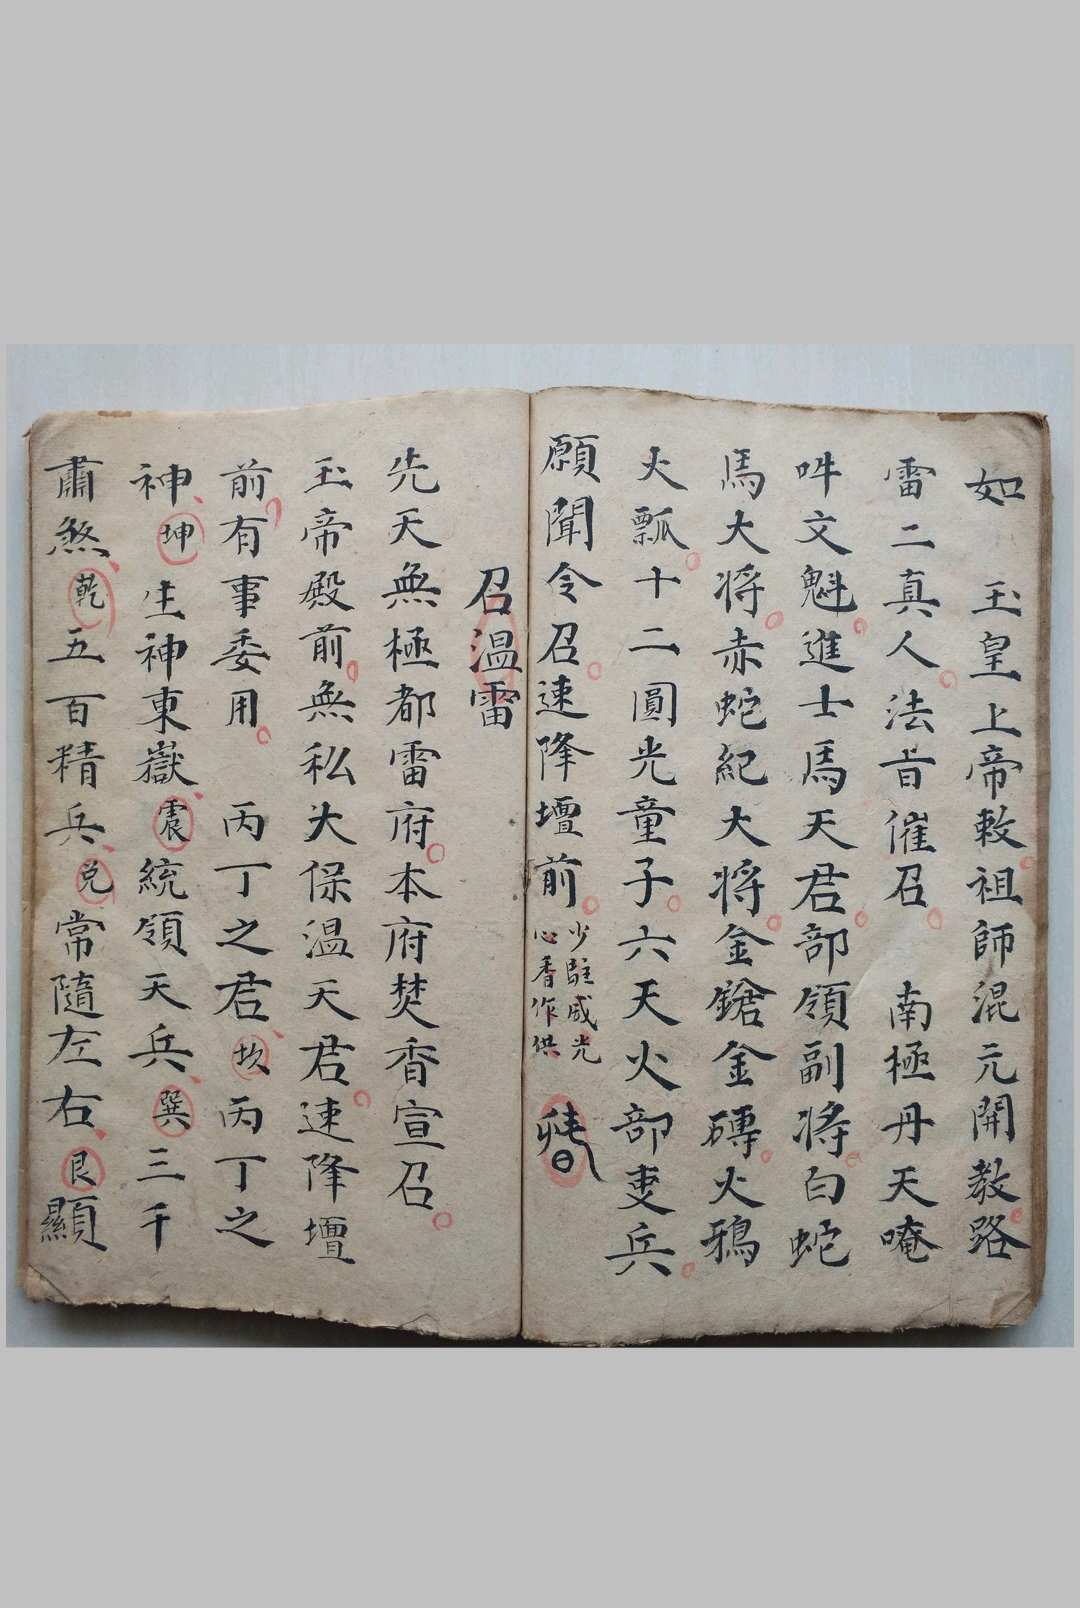 如 玉皇上帝敕祖師混元開教路
雷二真人法旨催召 南極丹天唵
吽文魁進士馬天君部領副将白蛇
馬大将赤蛇紀大将金鎗金磚火鴉
火瓢十二圓光童子六天火部吏兵
願聞令召速降壇前 少駐威光 心香作供
召温雷
先天無極都雷府本府焚香宣召
玉帝殿前無私大保温天君速降壇
前有事委用 丙丁之君坎丙丁之
神坤生神東嶽震統領天兵巽三千
肅煞乾五百精兵兌常隨左右艮顯